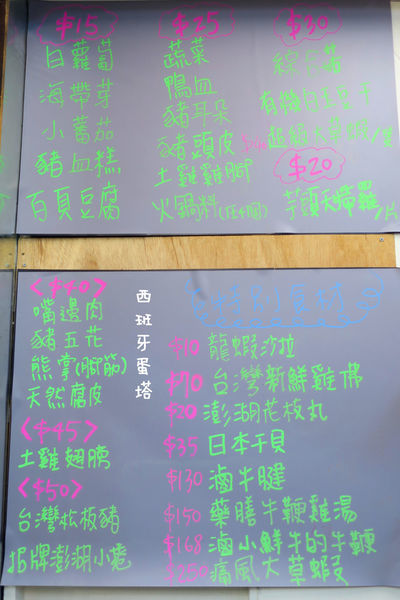 $15
白蘿蔔
海帶芽
小蕃茄
豬血糕
百頁豆腐
$25
蔬菜
鴨血
豬耳朵
豬頭皮 $40
土雞雞腳
火鍋料(任4個)
$30
$20
芋頭天婦羅/片
<$40>
嘴邊肉
豬五花
熊掌(腳筋)
天然腐皮
<$45>
土雞翅膀
<$50>
台灣松板豬
招牌澎湖小卷
西班牙蛋塔
特別企劃
$10 龍蝦沙拉
$70 台灣新鮮雞佛
$20 澎湖花枝丸
$35 日本干貝
$130 滷牛腱
$150 藥膳牛鞭雞湯
$168 滷小鮮牛的牛鞭
$250 痛風大草蝦